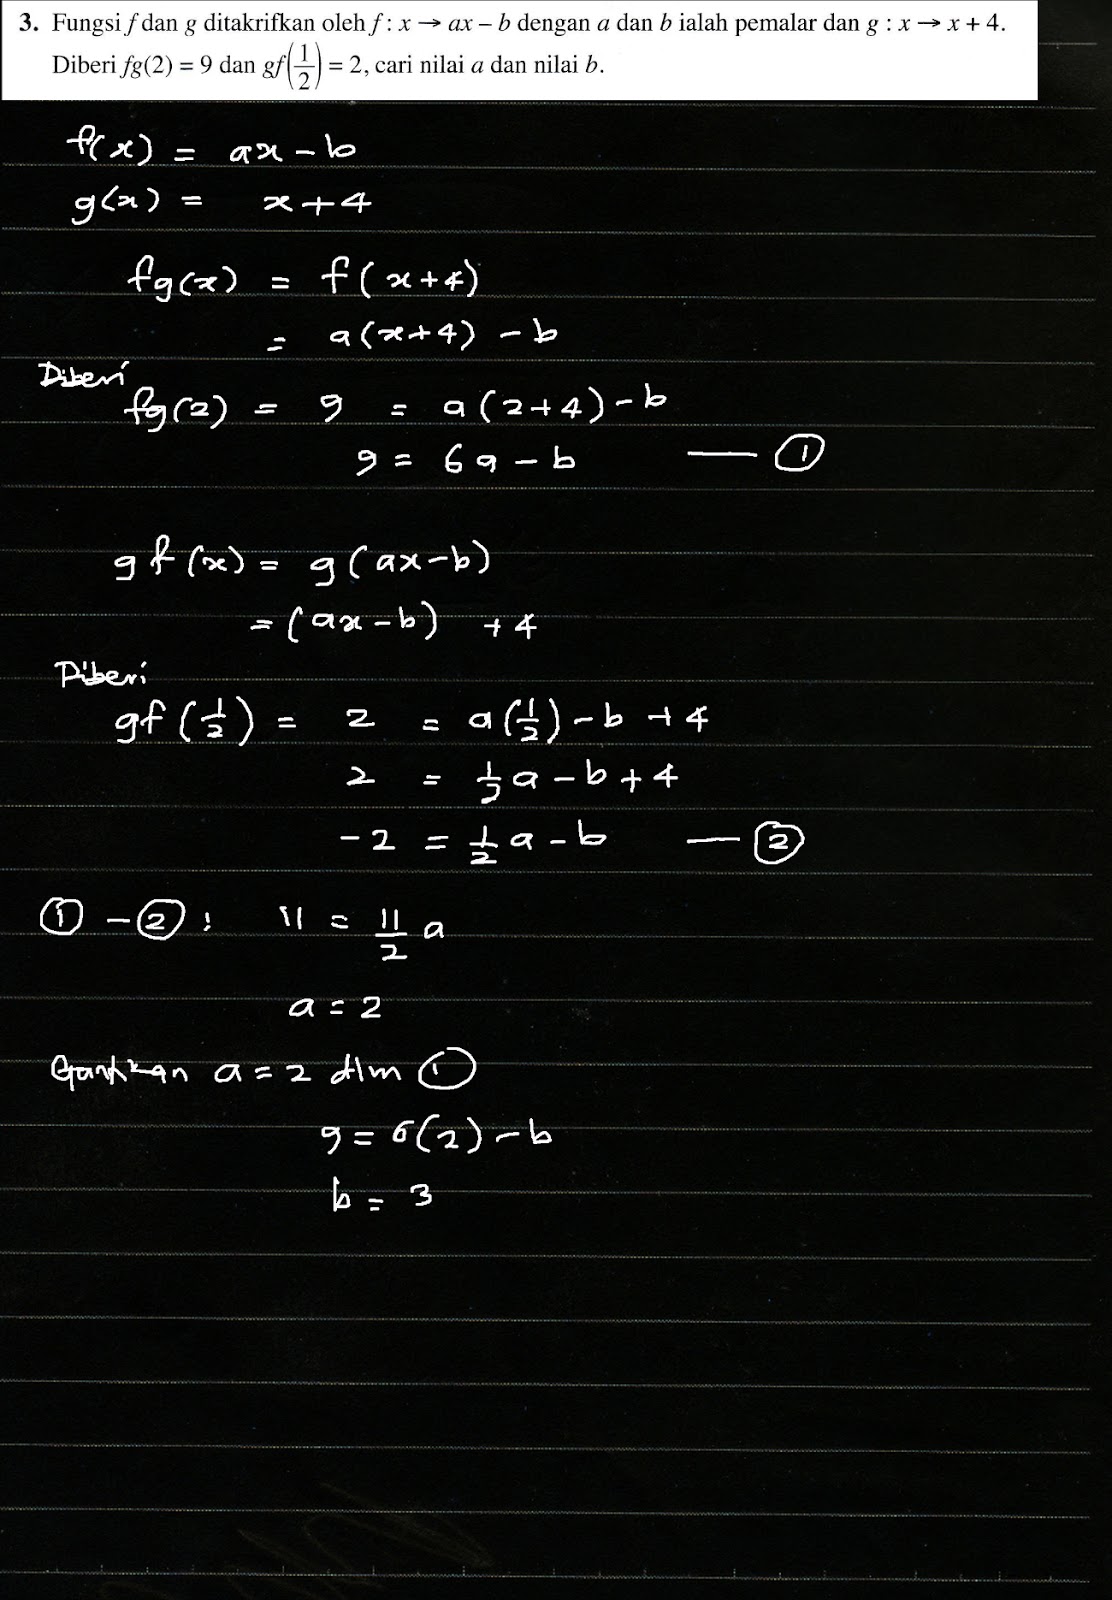 3. Fungsi f dan g ditakrifkan oleh f : x → ax – b dengan a dan b ialah pemalar dan g : x → x + 4.
Diberi fg(2) = 9 dan gf(1/2) = 2, cari nilai a dan nilai b.
f(x) = ax – b
g(x) = x + 4
fg(x) = f(x+4)
= a(x+4) – b
Diberi
fg(2) = 9 = a(2+4) – b
9 = 6a – b — ①
gf(x) = g(ax–b)
= (ax–b) + 4
Diberi
gf(1/2) = 2 = a(1/2) – b + 4
2 = 1/2 a – b + 4
–2 = 1/2 a – b — ②
① – ② : 11 = 11/2 a
a = 2
Gantikan a = 2 dlm ①
9 = 6(2) – b
b = 3